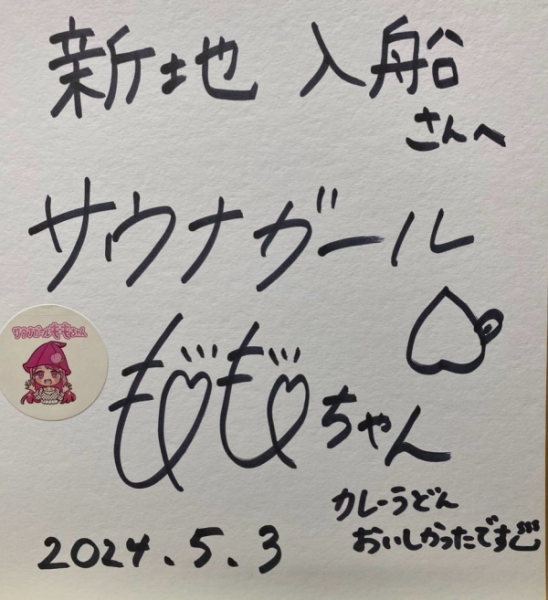 新地 入船
さんへ
サウナガール
サウナガールももちゃん
ももちゃん
カレーうどん
おいしかったです
2024.5.3